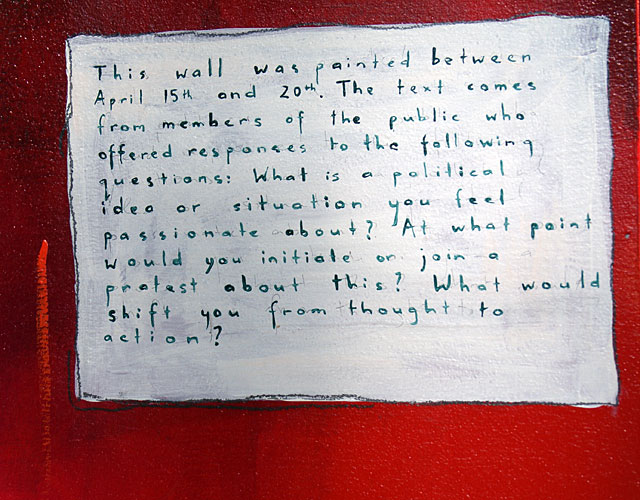 This wall was painted between
April 15th and 20th. The text comes
from members of the public who
offered responses to the following
questions: What is a political
idea or situation you feel
passionate about? At what point
would you initiate or join a
protest about this? What would
shift you from thought to
action?